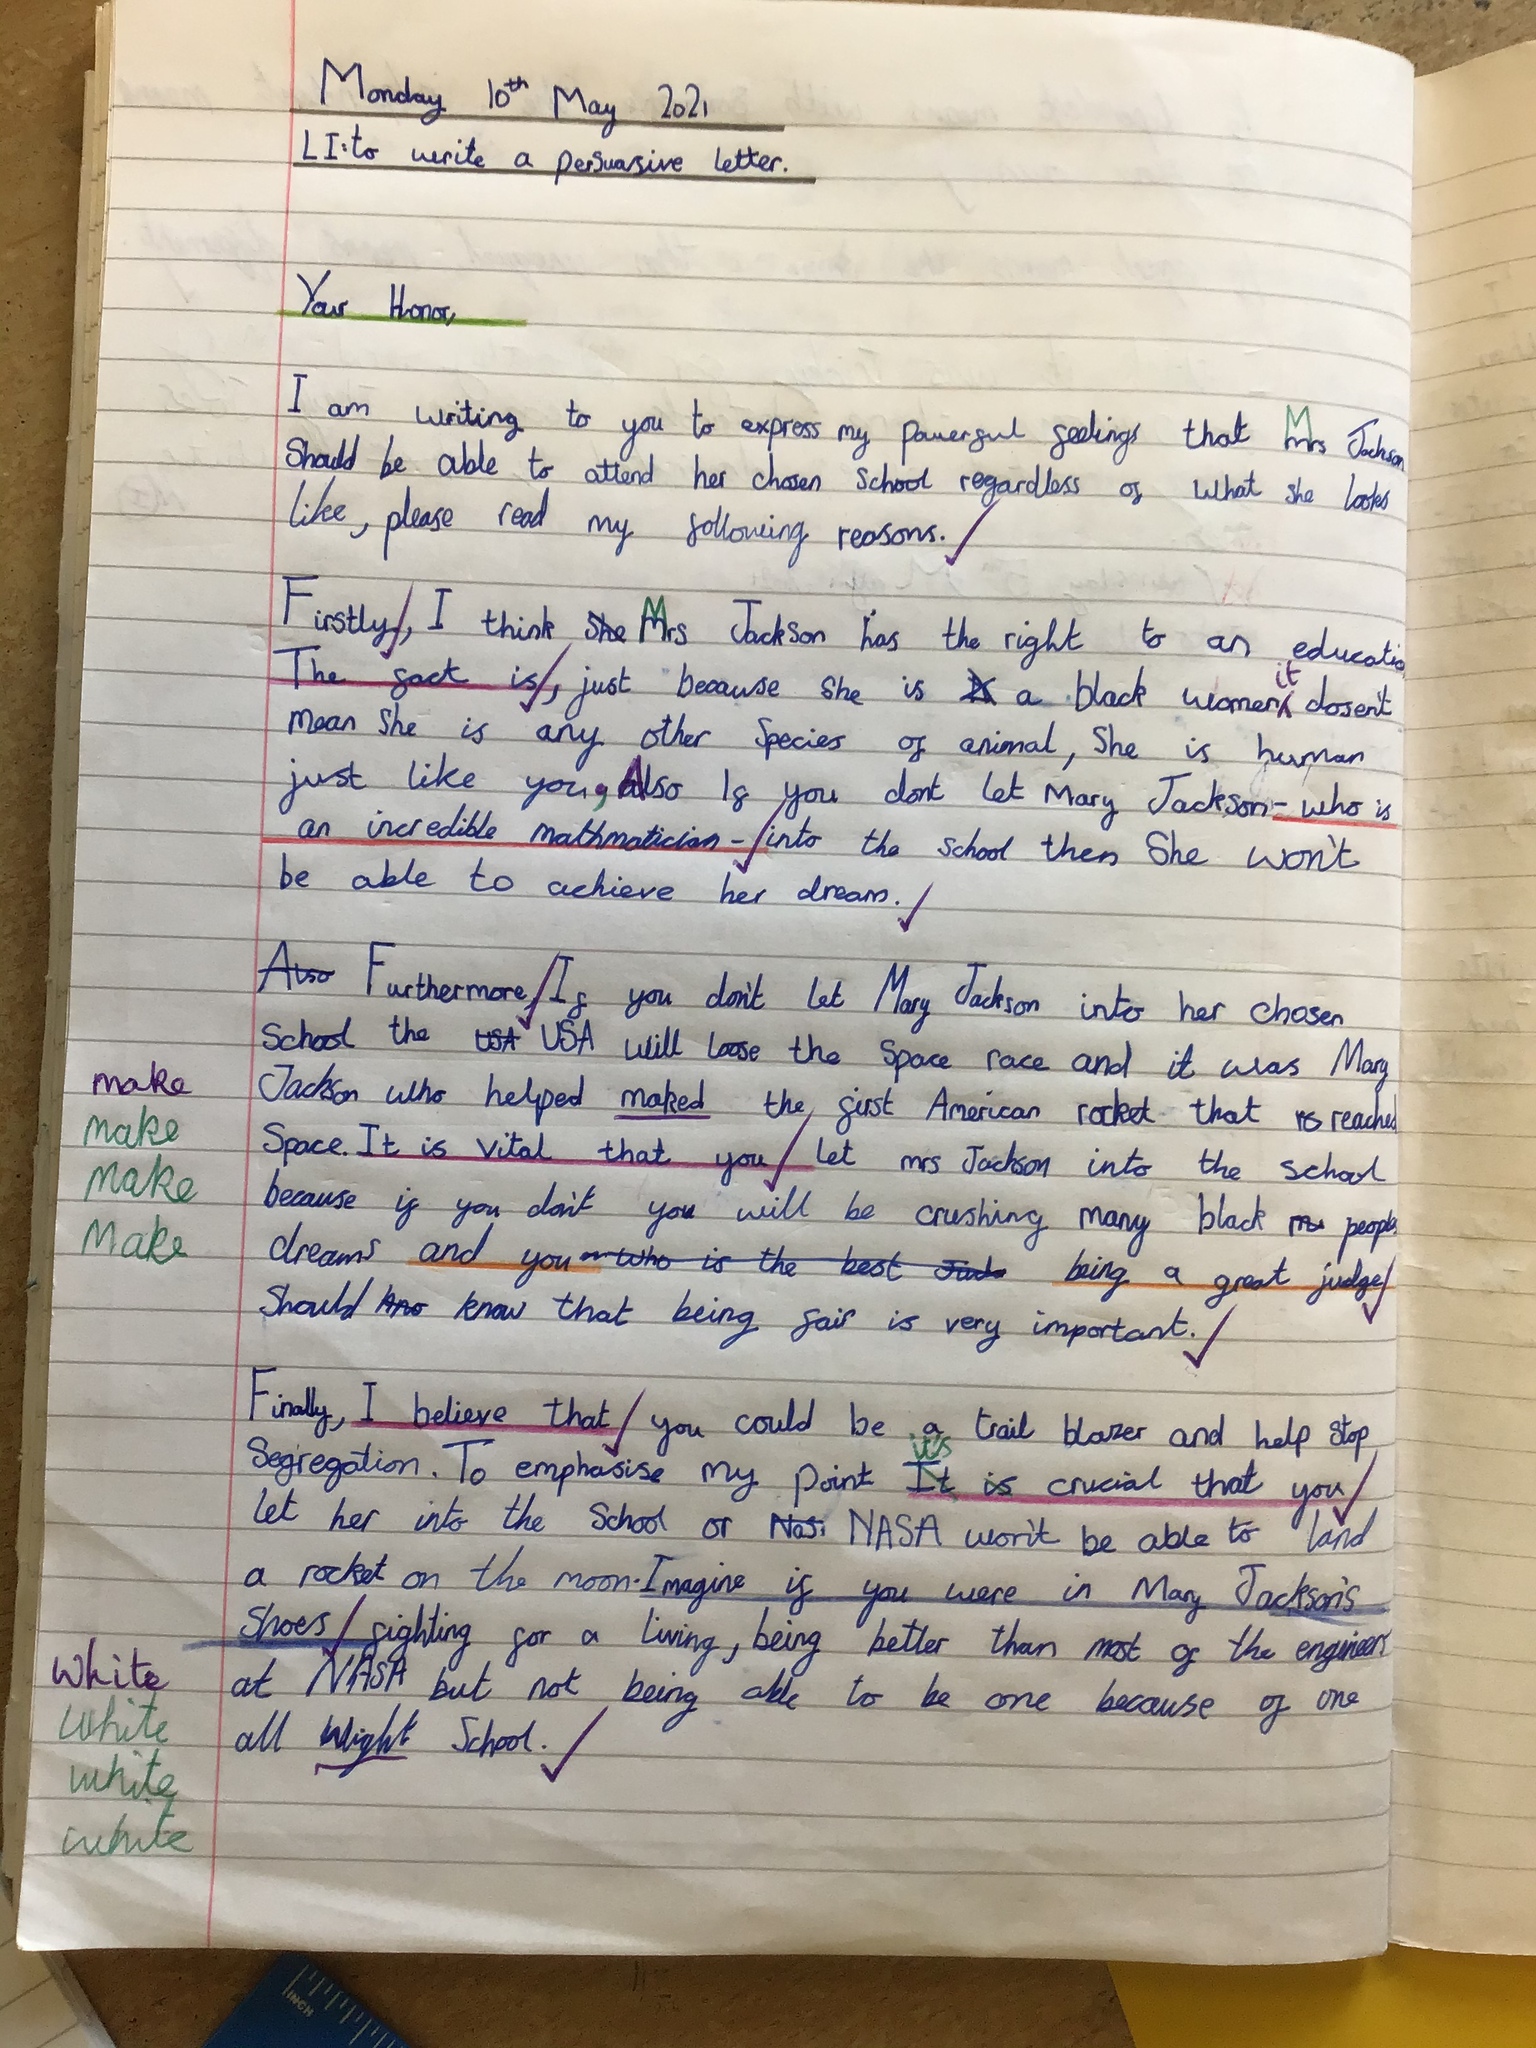 Monday 10th May 2021
LI: to write a persuasive letter.
Your Honor,
I am writing to you to express my powerful feelings that Mrs Jackson
should be able to attend her chosen School regardless of what she looks
like, please read my following reasons.
Firstly, I think she Mrs Jackson has the right to an educatio
The fact is, just because she is a black women it dosen't
mean she is any other species of animal, She is human
just like you, Also If you dont let Mary Jackson - who is
an incredible mathmatician - into the school then She won't
be able to achieve her dream.
Also Furthermore, If you don't let Mary Jackson into her chosen
School the USA USA will loose the space race and it was Mary
make Jackson who helped maked the first American rocket that reached
make Space. It is vital that you let mrs Jackson into the school
make because if you don't you will be crushing many black people
make dreams and you who is the best being a great judge
should kno know that being fair is very important.
Finally, I believe that you could be a trail blazer and help stop
Segregation. To emphasise my point It is it's crucial that you
let her into the School or Nas NASA won't be able to land
a rocket on the moon. Imagine if you were in Mary Jackson's
shoes fighting for a living, being better than most of the engineers
white at NASA but not being able to be one because of one
white all Wight School.
white
white
INCH